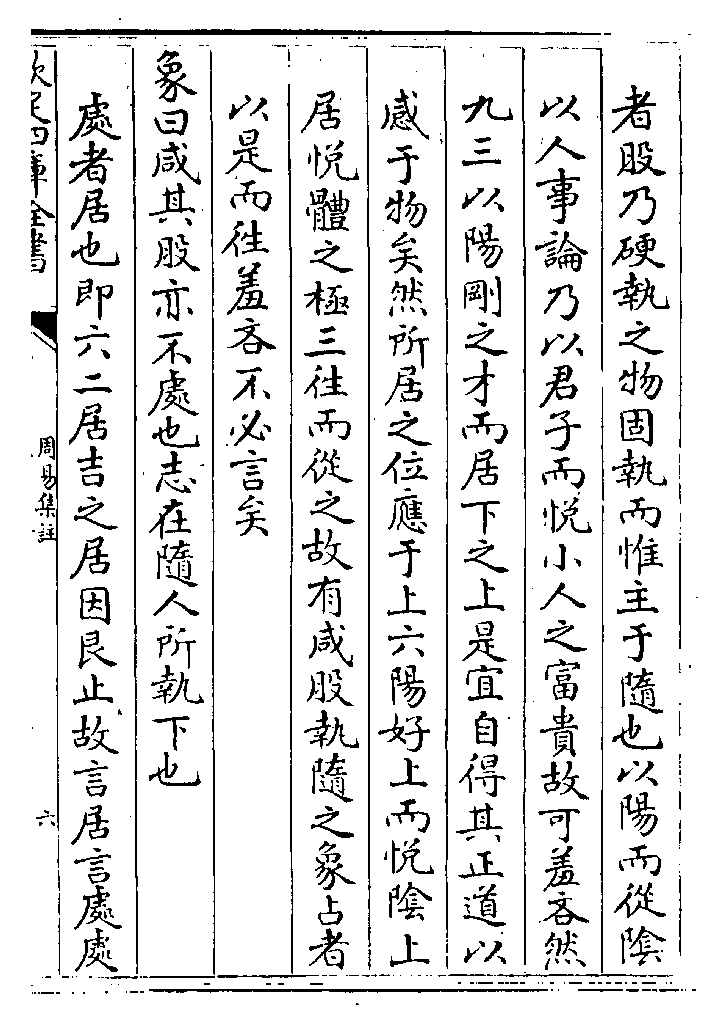 者股乃硬執之物固執而惟主于隨也以陽而從隂
以人事論乃以君子而悦小人之富貴故可羞吝然
九三以陽剛之才而居下之上是宜自得其正道以
感于物矣然所居之位應于上六陽好上而悦隂上
居悦體之極三往而從之故有咸股執隨之象占者
以是而往羞吝不必言矣
象曰咸其股亦不處也志在隨人所執下也
處者居也即六二居吉之居因艮止故言居言處處
欽定四庫全書
周易集註
六